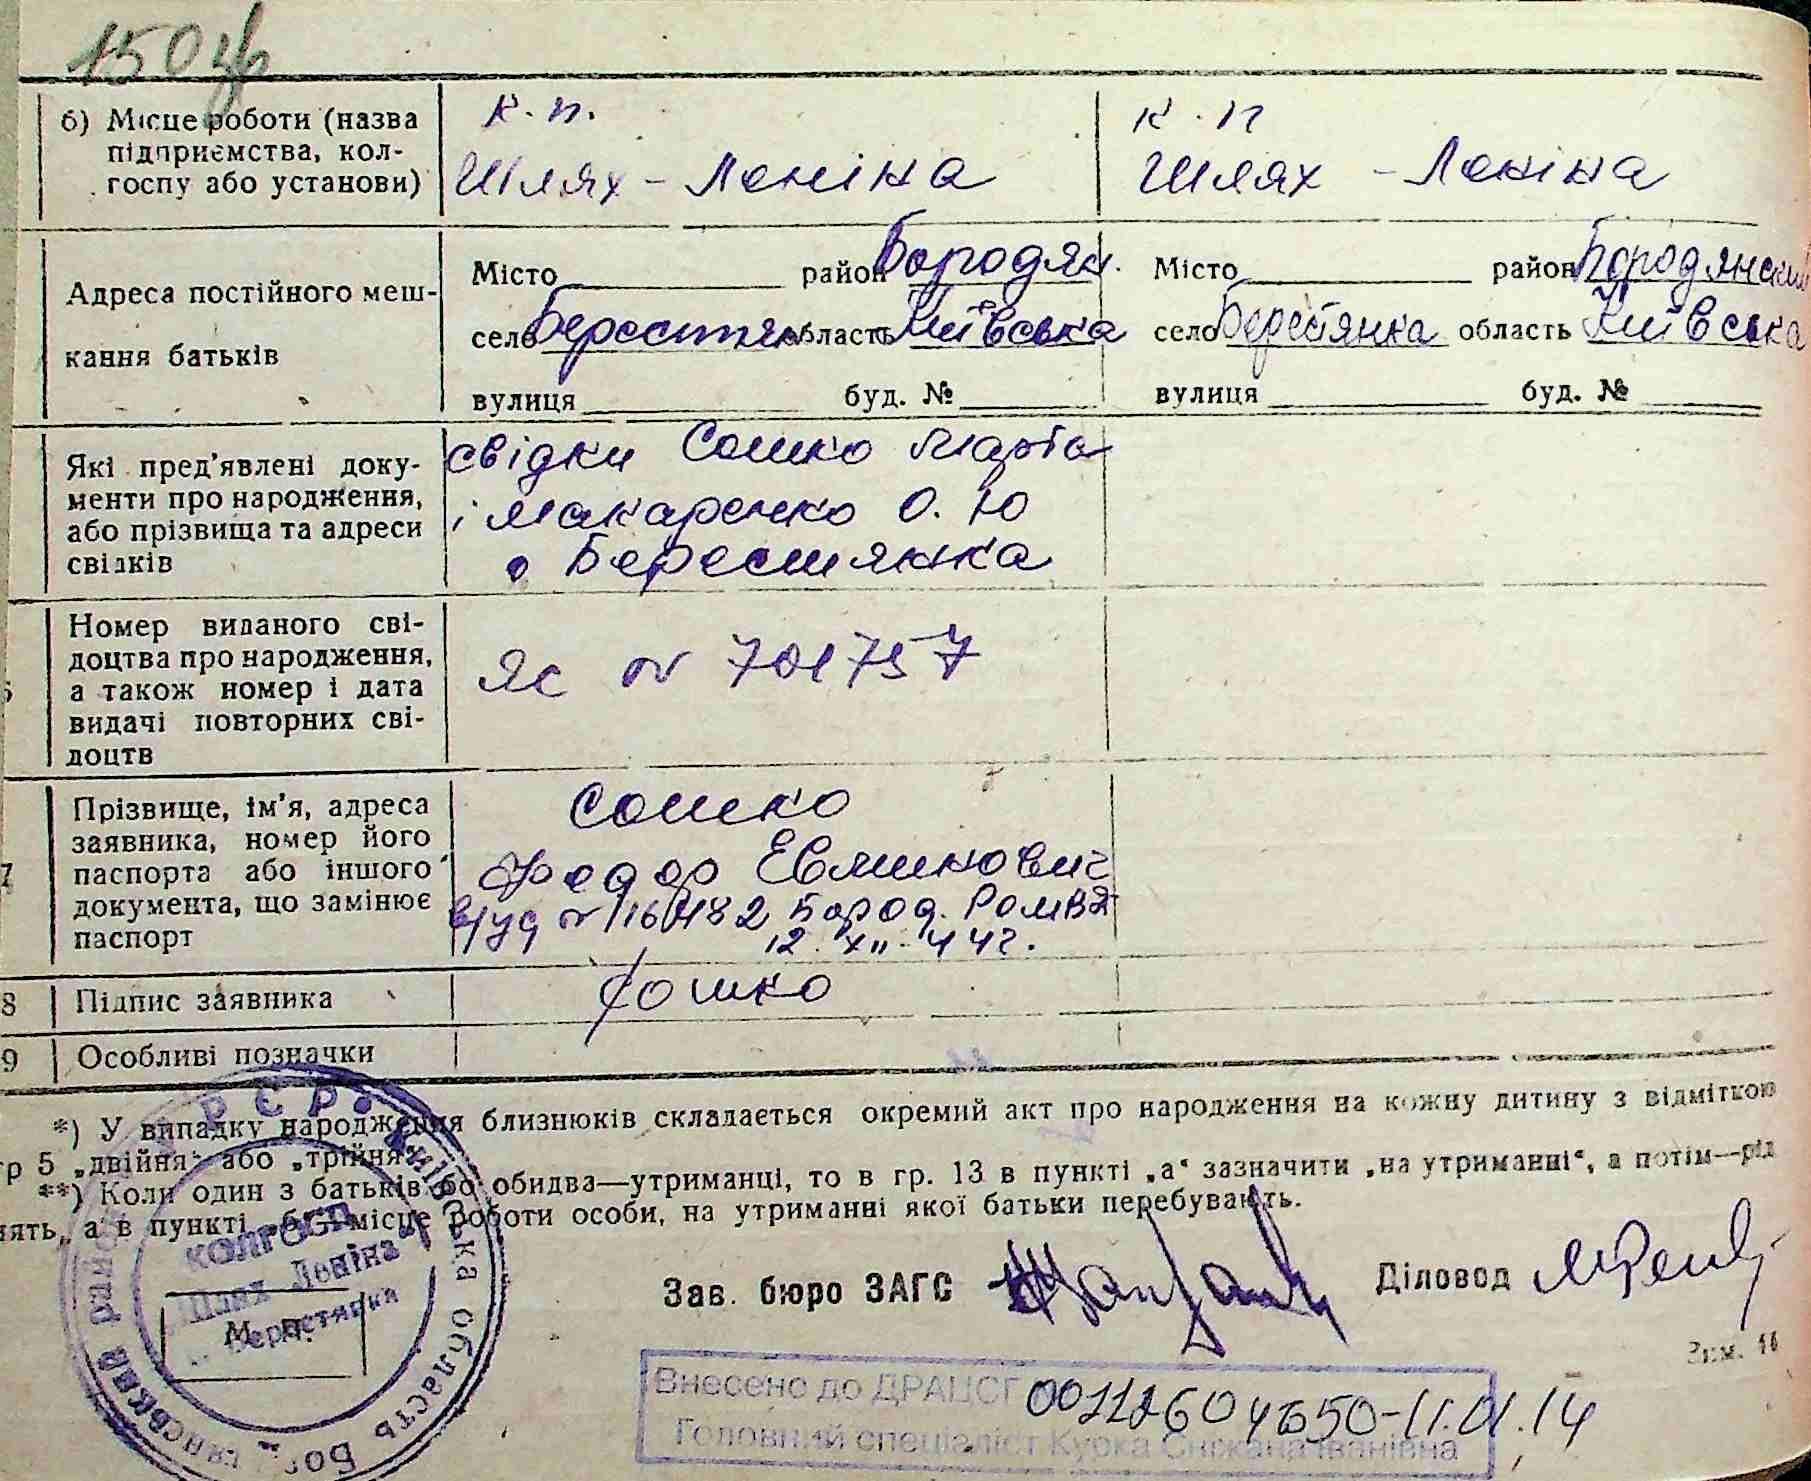 150
б) Місце роботи (назва підприємства, колгоспу або установи)
к. п.
Шлях - Леніна
к. п
Шлях - Леніна
Адреса постійного мешкання батьків
Місто район Бородян.
село Берестянка область Київська
вулиця буд. №
Місто район Бородянский
село Берестянка область Київська
вулиця буд. №
Які пред'явлені документи про народження, або прізвища та адреси свідків
свідки Сошко Марта
і Макаренко О. Ю
Берестянка
Номер виданого свідоцтва про народження, а також номер і дата видачі повторних свідоцтв
ЯС № 701757
7
Прізвище, ім'я, адреса заявника, номер його паспорта або іншого документа, що замінює паспорт
Сошко
Федор
№ 116482 Бород.
12. XII. 44г.
8 Підпис заявника
Сошко
9 Особливі позначки
*) У випадку народження близнюків складається окремий акт про народження на кожну дитину з відміткою
гр 5 „двійня“ або „трійня“.
**) Коли один з батьків або обидва—утриманці, то в гр. 13 в пункті „а“ зазначити „на утриманні“, а потім—рід
нять, а в пункті „б“—місце роботи особи, на утриманні якої батьки перебувають.
Зав. бюро ЗАГС
Діловод
М. П.
Зам. 16
РСР • Київська область Бородянський район
колгосп
Шлях Леніна
Берестянка
Внесено до ДРАЦСГ
00112604650-11.01.14
Головний спеціаліст Курка Сніжана Іванівна